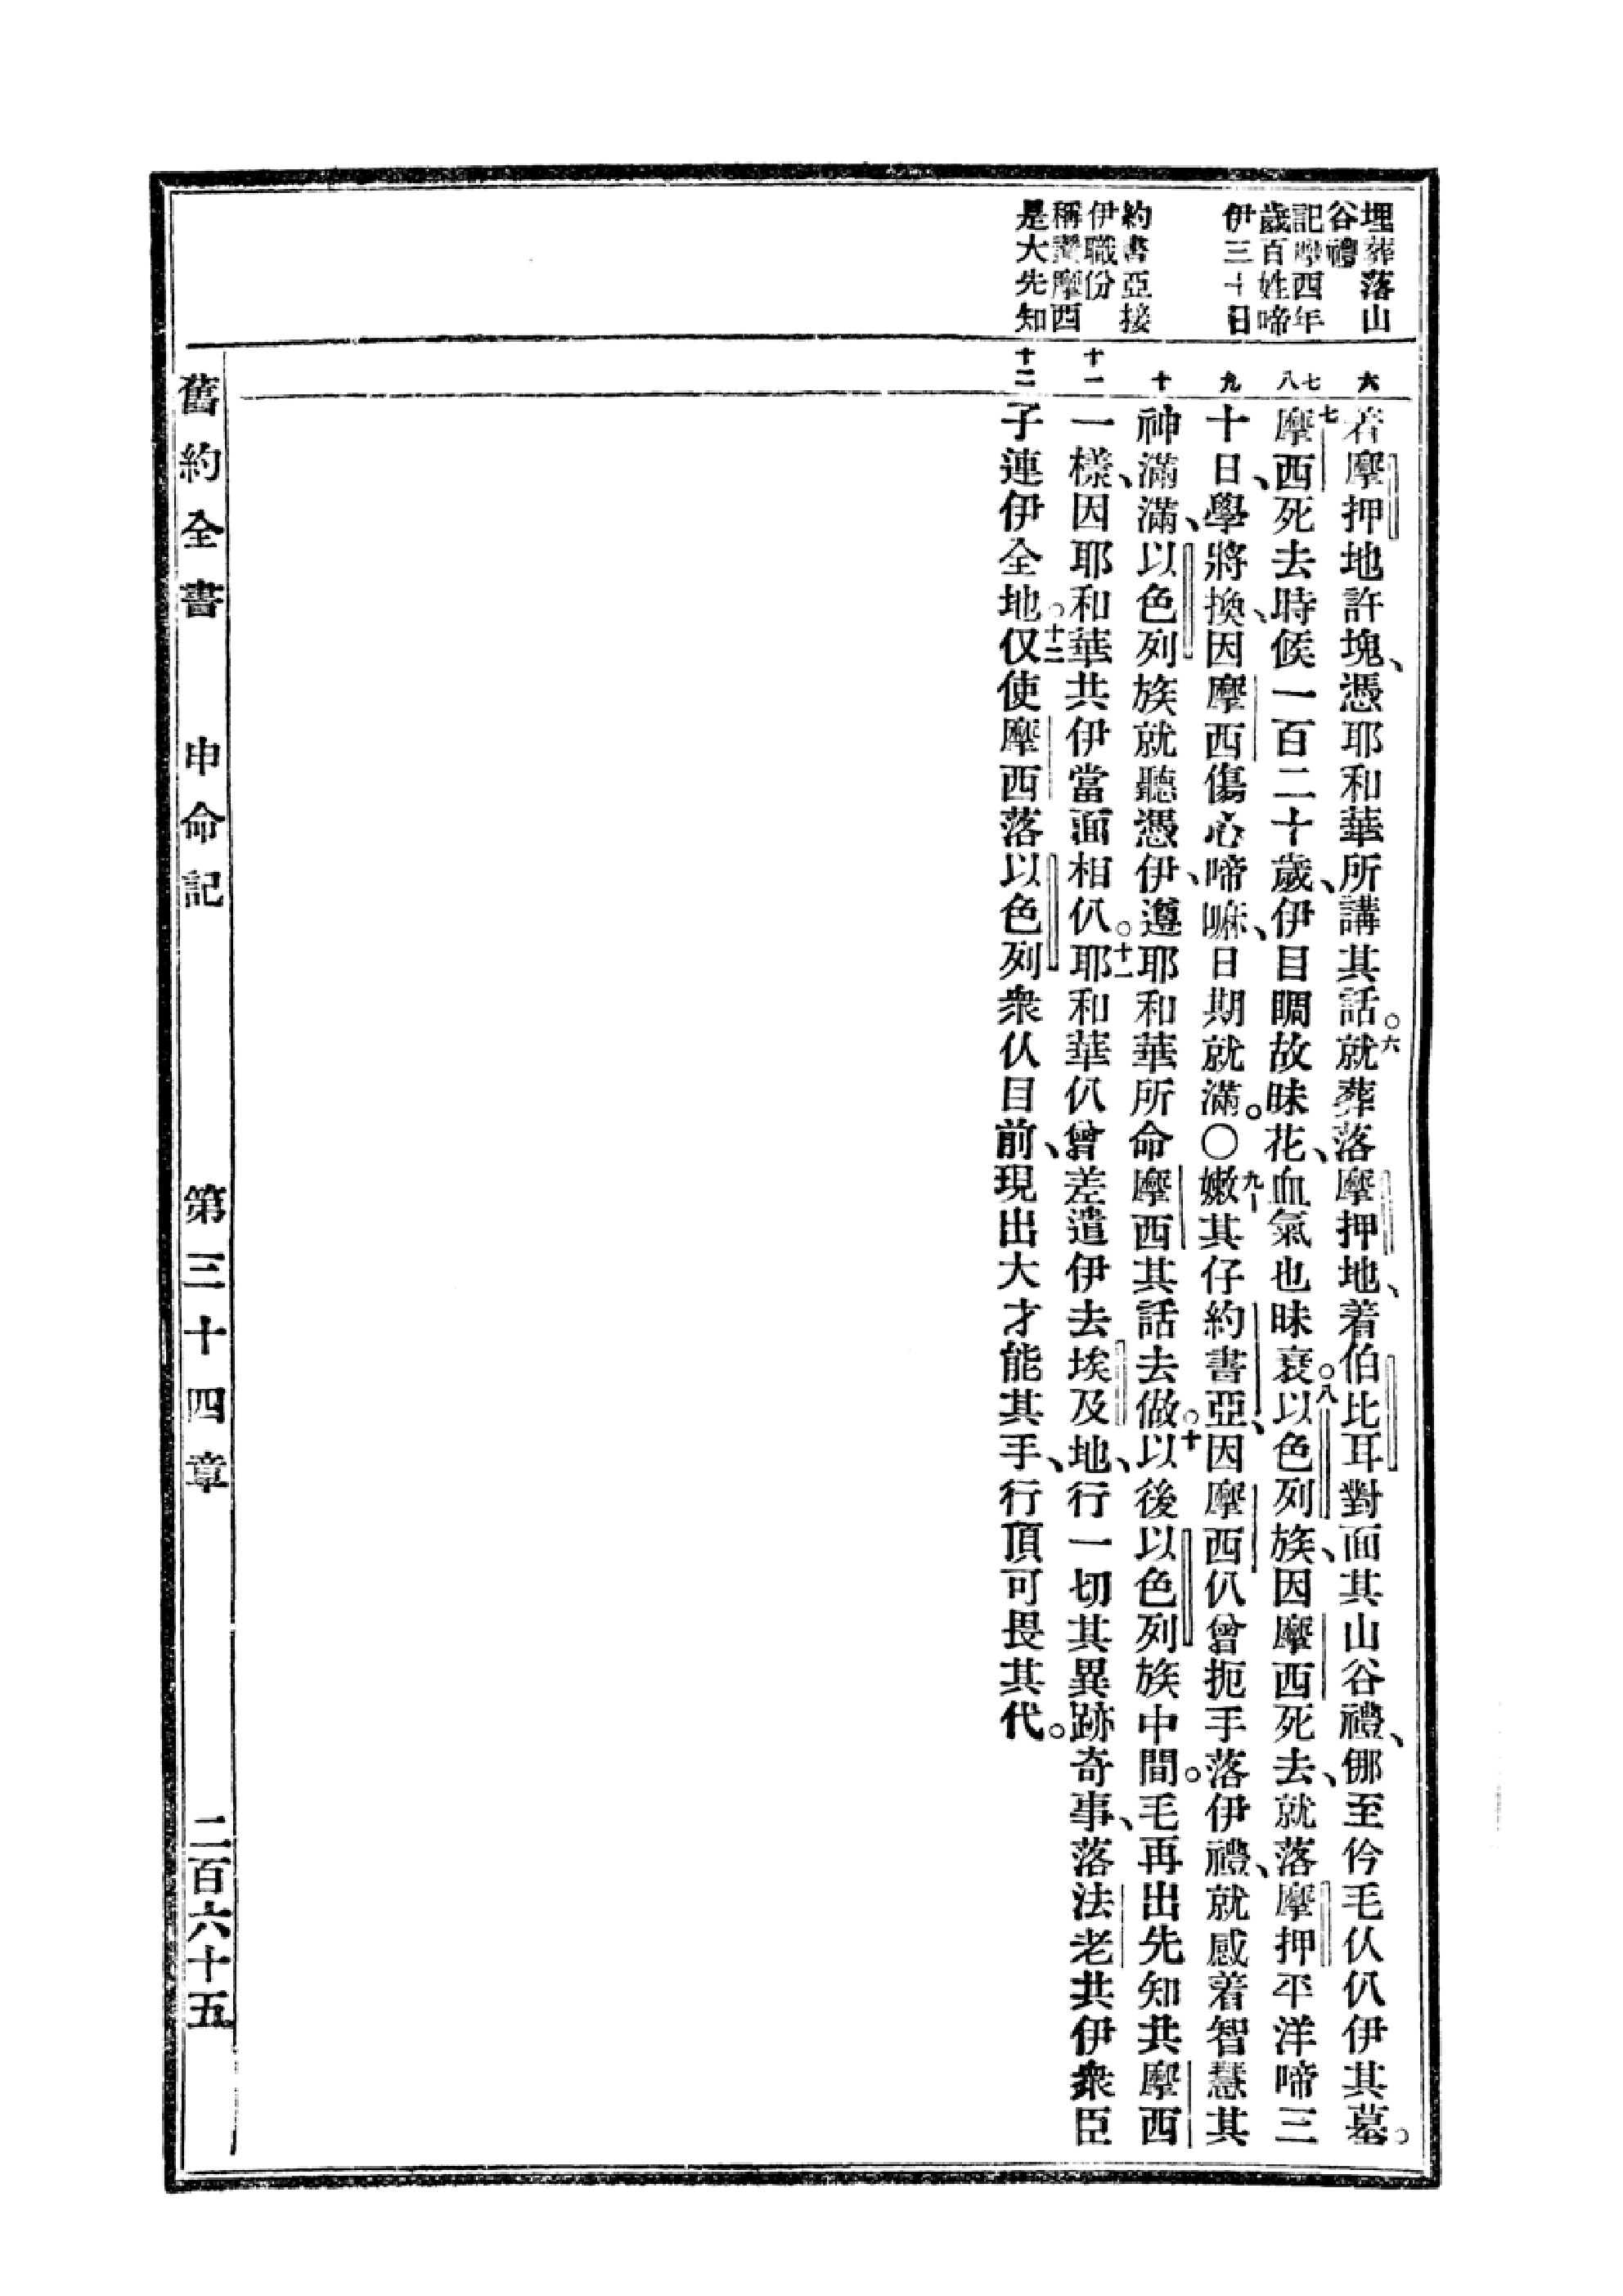 埋葬落山
谷禮
記摩西年
歲百姓啼
伊三十日
約書亞接
伊職份
稱讚摩西
是大先知
六
七
八
九
十
十一
十二
若摩押地許塊、憑耶和華所講其話。六就葬落摩押地、着伯比耳對面其山谷禮、倻至仱毛仈仈伊其墓。
七摩西死去時候一百二十歲、伊目睭故昧花、血氣也昧衰。八以色列族、因摩西死去、就落摩押平洋啼三
十日、學將換、因摩西傷心啼嘛、日期就滿。〇九嫩其仔約書亞、因摩西仈曾扼手落伊禮、就感着智慧其
神滿滿、以色列族就聽憑伊、遵耶和華所命摩西其話去做。十以後以色列族中間。毛再出先知共摩西
一樣、因耶和華共伊當面相仈。十一耶和華仈曾差遣伊去埃及地、行一切其異跡奇事、落法老共伊衆臣
子連伊全地。十二仅使摩西落以色列衆仈目前、現出大才能其手、行頂可畏其代。
舊約全書　申命記　第三十四章　二百六十五